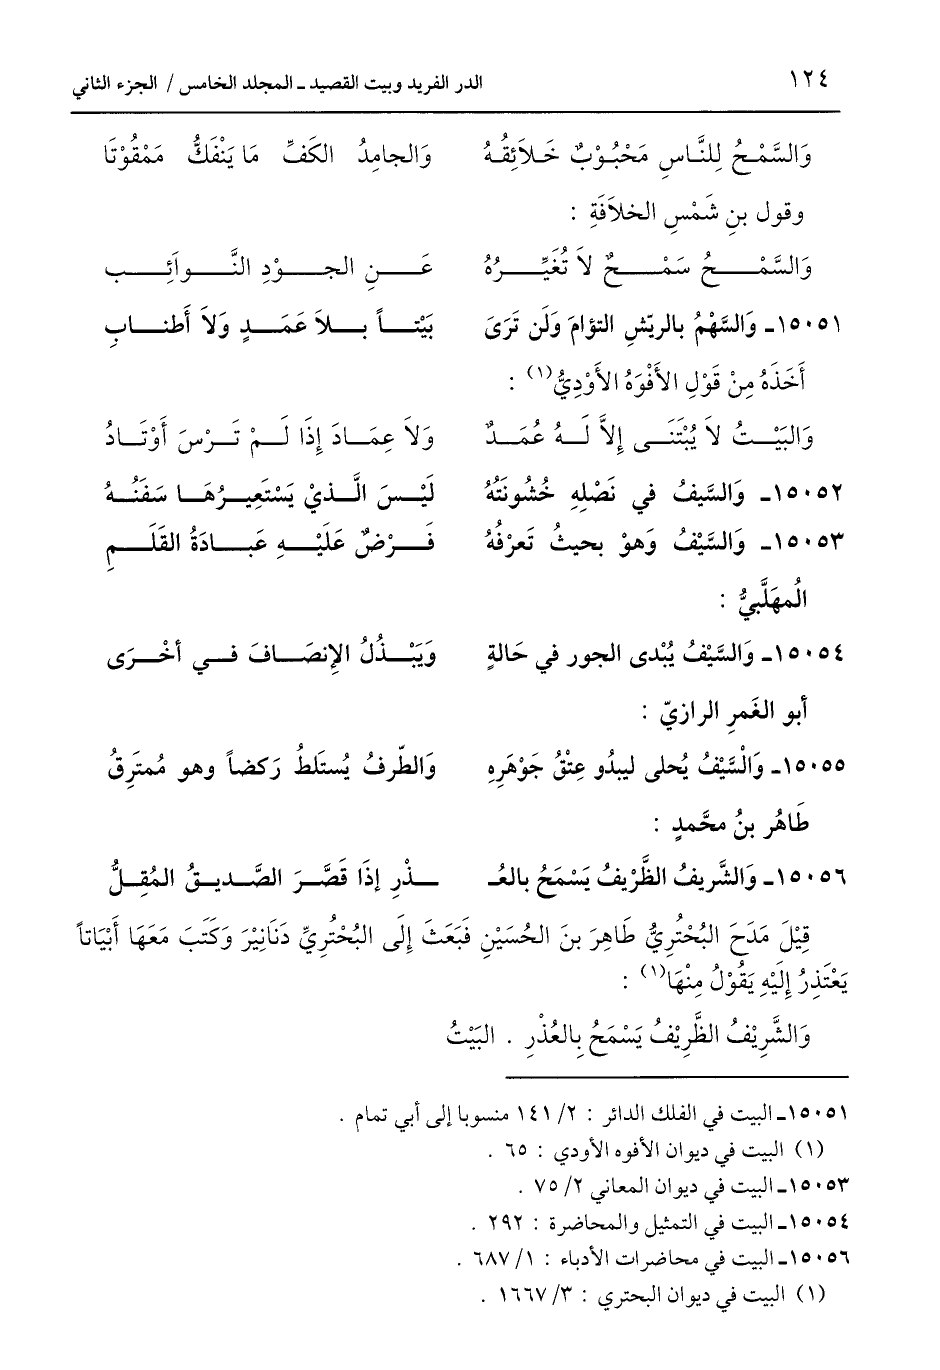 ١٢٤ الدر الفريد وبيت القصيد ـ المجلد الخامس / الجزء الثاني
وَالسَّمْحُ لِلنَّاسِ مَحْبُوْبٌ خَلاَئِقُهُ وَالجامِدُ الكَفِّ مَا يَنْفَكُّ مَمْقُوْتَا
وقول بنِ شَمْسِ الخلاَفَةِ :
وَالسَّمْحُ سَمْحٌ لاَ تُغَيِّرُهُ عَنِ الجوْدِ النَّوائِب
١٥٠٥١ـ وَالسَّهْمُ بالريّشِ التؤامَ وَلَن تَرَىَ بَيْتاً بلاَ عَمَدٍ وَلاَ أَطنابِ
أَخَذَهُ مِنْ قَوْلِ الأَفْوَهُ الأَوْدِيُّ(١) :
وَالبَيْتُ لاَ يُبْتَنَى إِلاَّ لَهُ عُمَدٌ وَلاَ عِمَادَ إِذَا لَمْ تَرْسَ أَوْتَادُ
١٥٠٥٢ـ وَالسَّيفُ في نَصْلِهِ خُشُونَتُهُ لَيْسَ الَّذيْ يَسْتَعِيرُهَا سَفَنُهُ
١٥٠٥٣ـ وَالسَّيْفُ وَهوْ بحيثُ تَعرْفُهُ فَرْضٌ عَلَيْهِ عَبادَةُ القَلَمِ
الُمهَلَّبيُّ :
١٥٠٥٤ـ وَالسَّيْفُ يُبْدى الجور في حَالةٍ وَيَبْذُلُ الإِنصَافَ في أخْرَى
أبو الغَمرِ الرازيّ :
١٥٠٥٥ـ وَالْسَّيْفُ يُحلى ليبدُو عِتْقُ جَوْهَرِهِ وَالطّرفُ يُستَلطُ رَكضاً وهو مُمتَرِقُ
طَاهُر بنُ محَّمدٍ :
١٥٠٥٦ـ وَالشَّريفُ الظَّرْيفُ يَسْمَحُ بالعُـ ـذْرِ إذَا قَصَّرَ الصَّديقُ المُقِلُّ
قِيْلَ مَدَحَ البُحْتُرِيُّ طَاهِرَ بنَ الحُسَيْنِ فَبَعَثَ إِلَى البُحْتُرِيِّ دَنَانِيْرَ وَكَتَبَ مَعَهَا أَبْيَاتاً
يَعْتَذِرُ إِلَيْهِ يَقُوْلُ مِنْهَا(١) :
وَالشَّرِيْفُ الظَّرِيْفُ يَسْمَحُ بِالعُذْرِ . البَيْتُ
١٥٠٥١ـ البيت في الفلك الدائر : ٢/ ١٤١ منسوبا إلى أبي تمام .
(١) البيت في ديوان الأفوه الأودي : ٦٥ .
١٥٠٥٣ـ البيت في ديوان المعاني ٢/ ٧٥ .
١٥٠٥٤ـ البيت في التمثيل والمحاضرة : ٢٩٢ .
١٥٠٥٦ـ البيت في محاضرات الأدباء : ١/ ٦٨٧ .
(١) البيت في ديوان البحتري : ٣/ ١٦٦٧ .